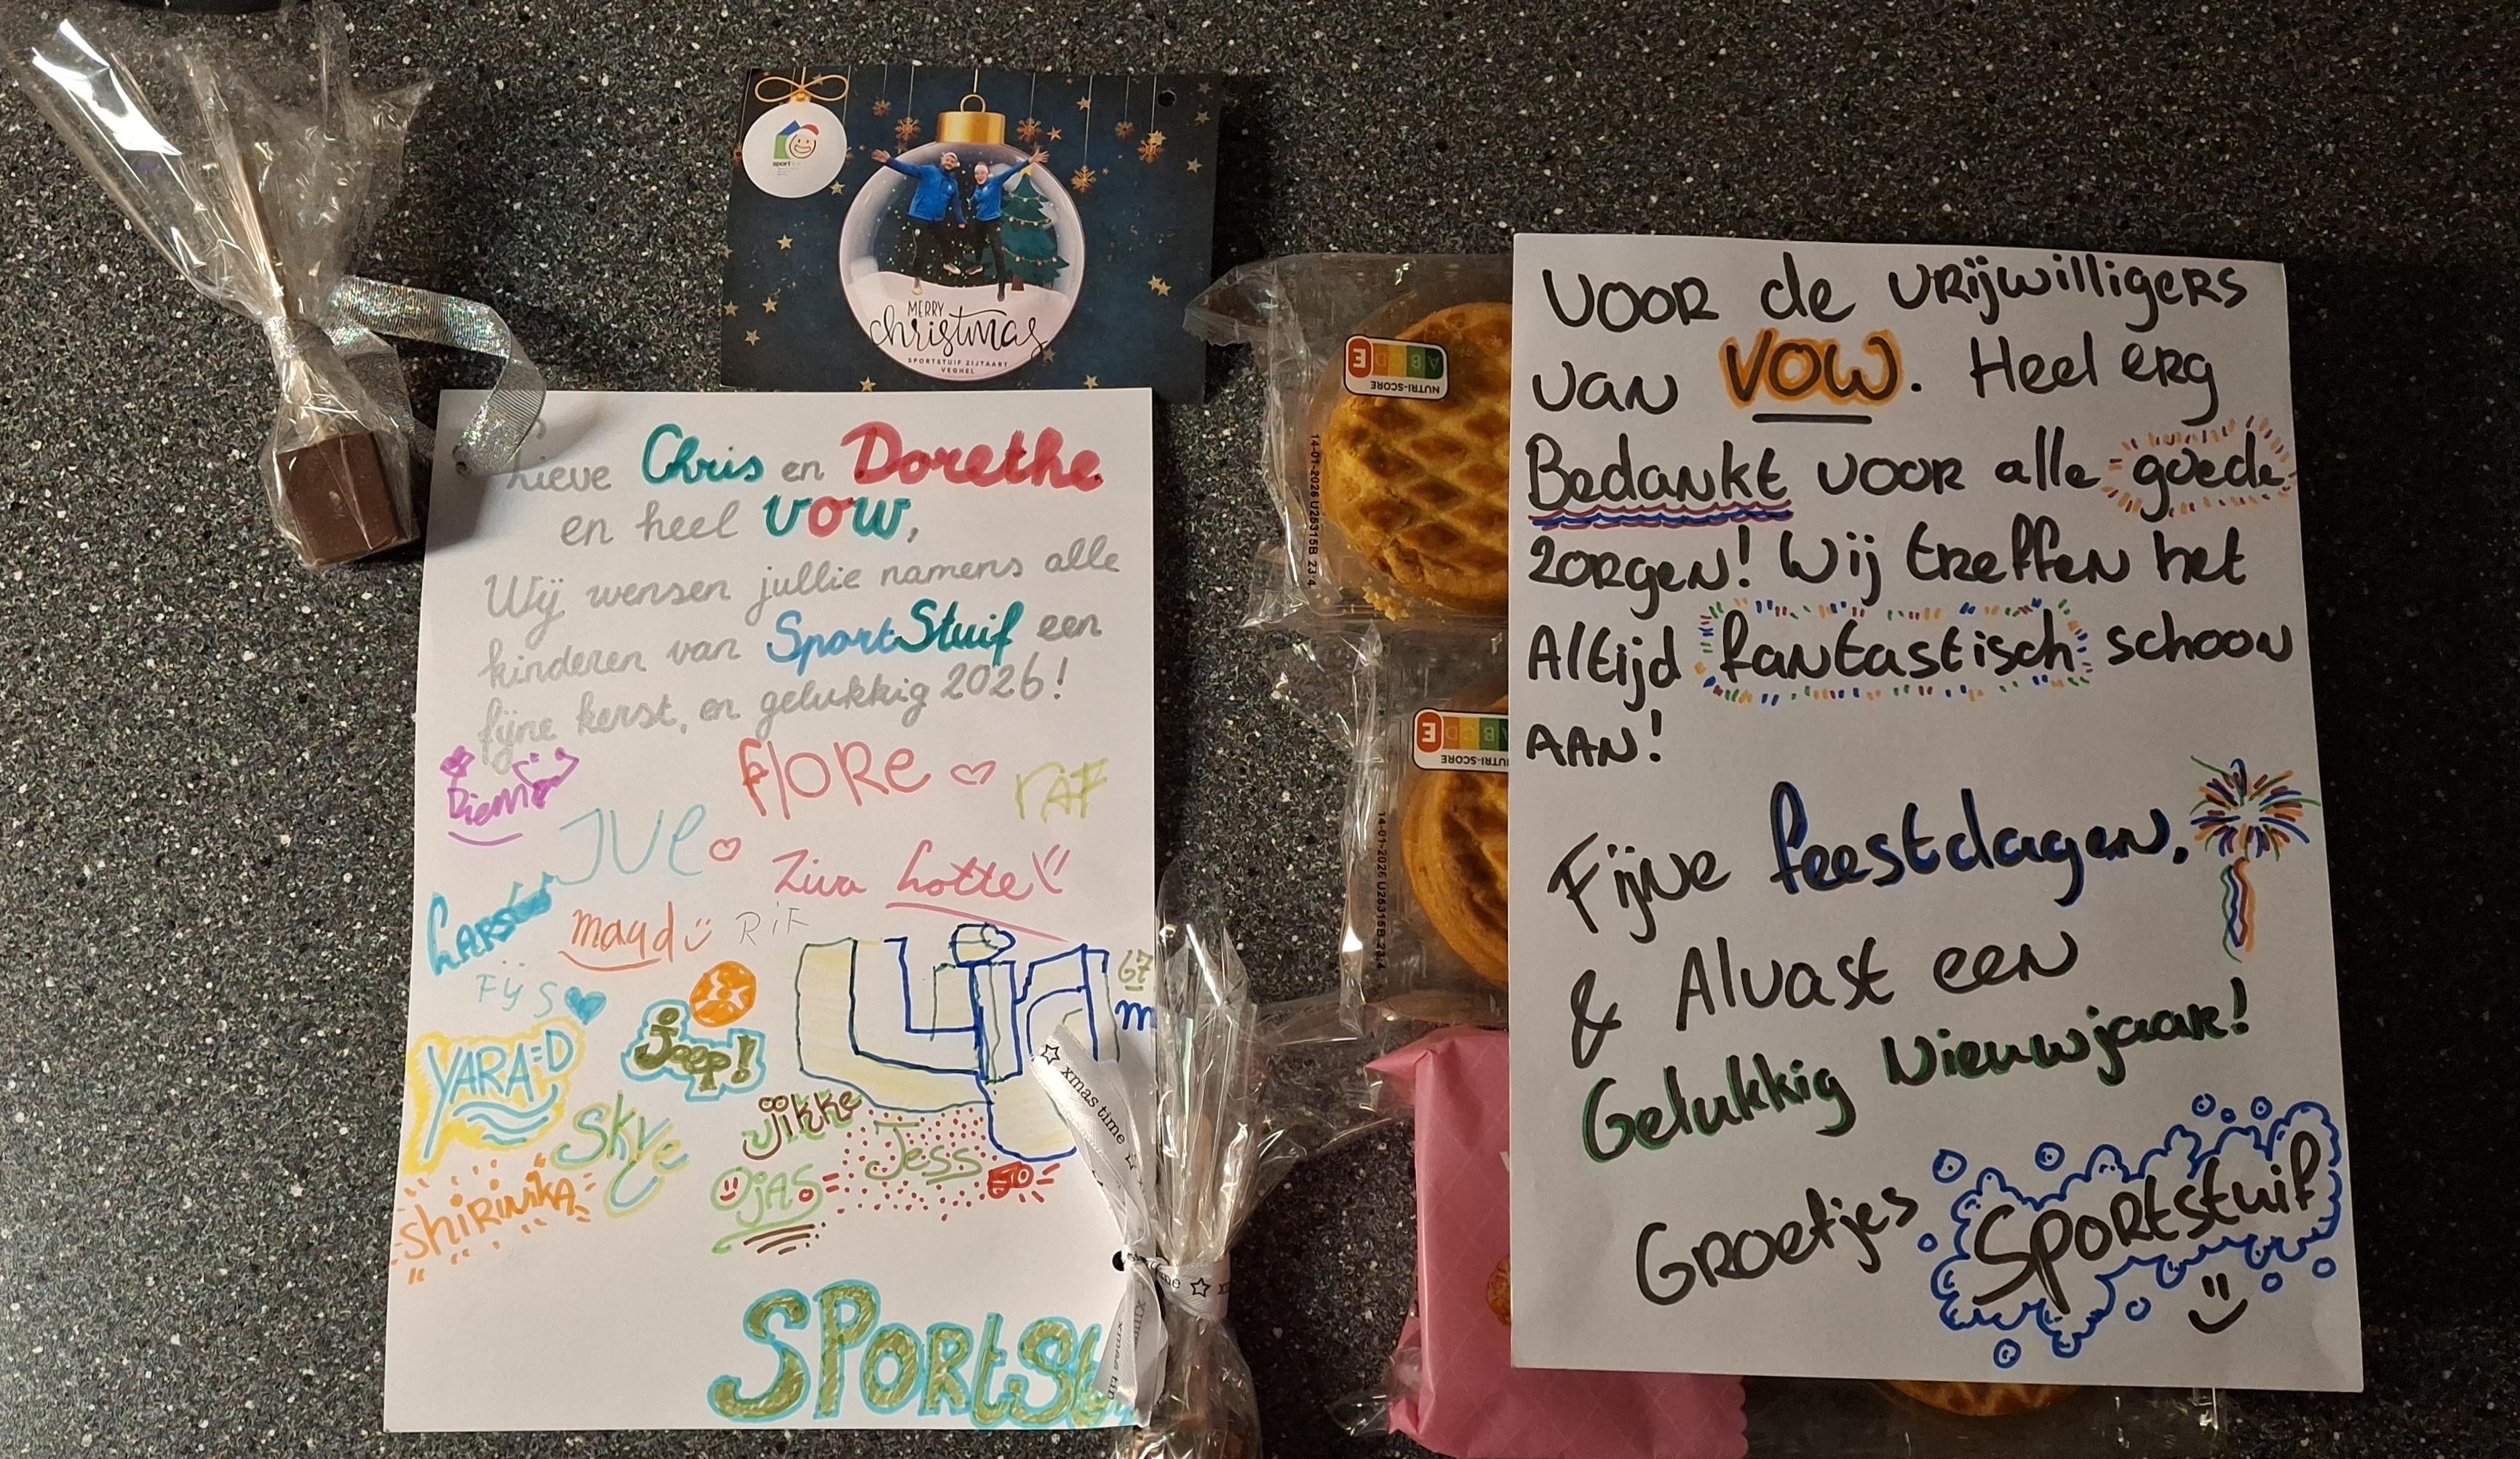 sport
MERRY
christmas
SPORTSTUIF ZIJTAART
VEGHEL
Lieve Chris en Dorethe
en heel VOW,
Wij wensen jullie namens alle
kinderen van SportStuif een
fijne kerst, en gelukkig 2026!
Fiore
raf
JUL
Ziva Lotte
Lars
maud
RiF
Fijs
67
m
YARA=D
joep!
SKYE
jikke
Jess
ojas
SHIRINIKA
SPORtSt
xmas time
NUTRI-SCORE
ABCDE
14-01-2026 U25315B 23:4
NUTRI-SCORE
14-01-2026 U25315B 23:4
VOOR de vrijwilligers
van VOW. Heel erg
Bedankt voor alle goede
zorgen! Wij treffen het
Altijd fantastisch schoon
AAN!
Fijne feestdagen,
& Alvast een
Gelukkig Nieuwjaar!
Groetjes Sportstuif